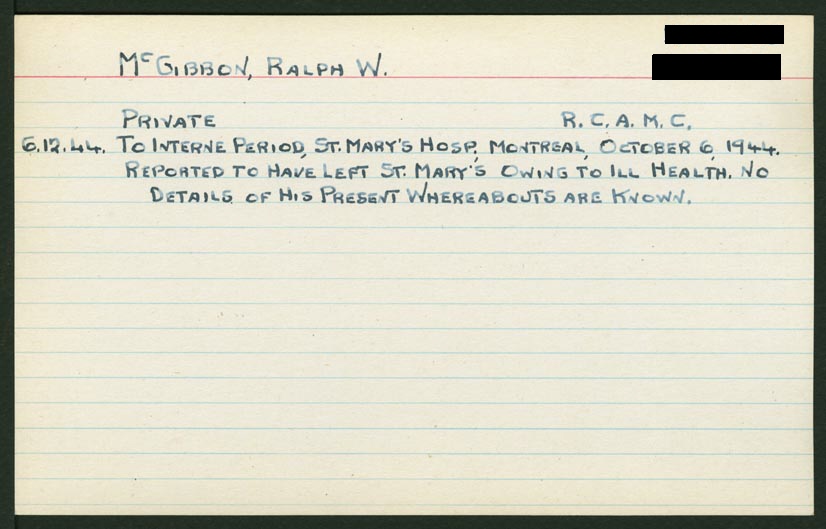 McGIBBON, RALPH W.
PRIVATE R.C.A.M.C.
6.12.44. TO INTERNE PERIOD, ST. MARY'S HOSP., MONTREAL, OCTOBER 6, 1944.
REPORTED TO HAVE LEFT ST. MARY'S OWING TO ILL HEALTH. NO
DETAILS OF HIS PRESENT WHEREABOUTS ARE KNOWN.